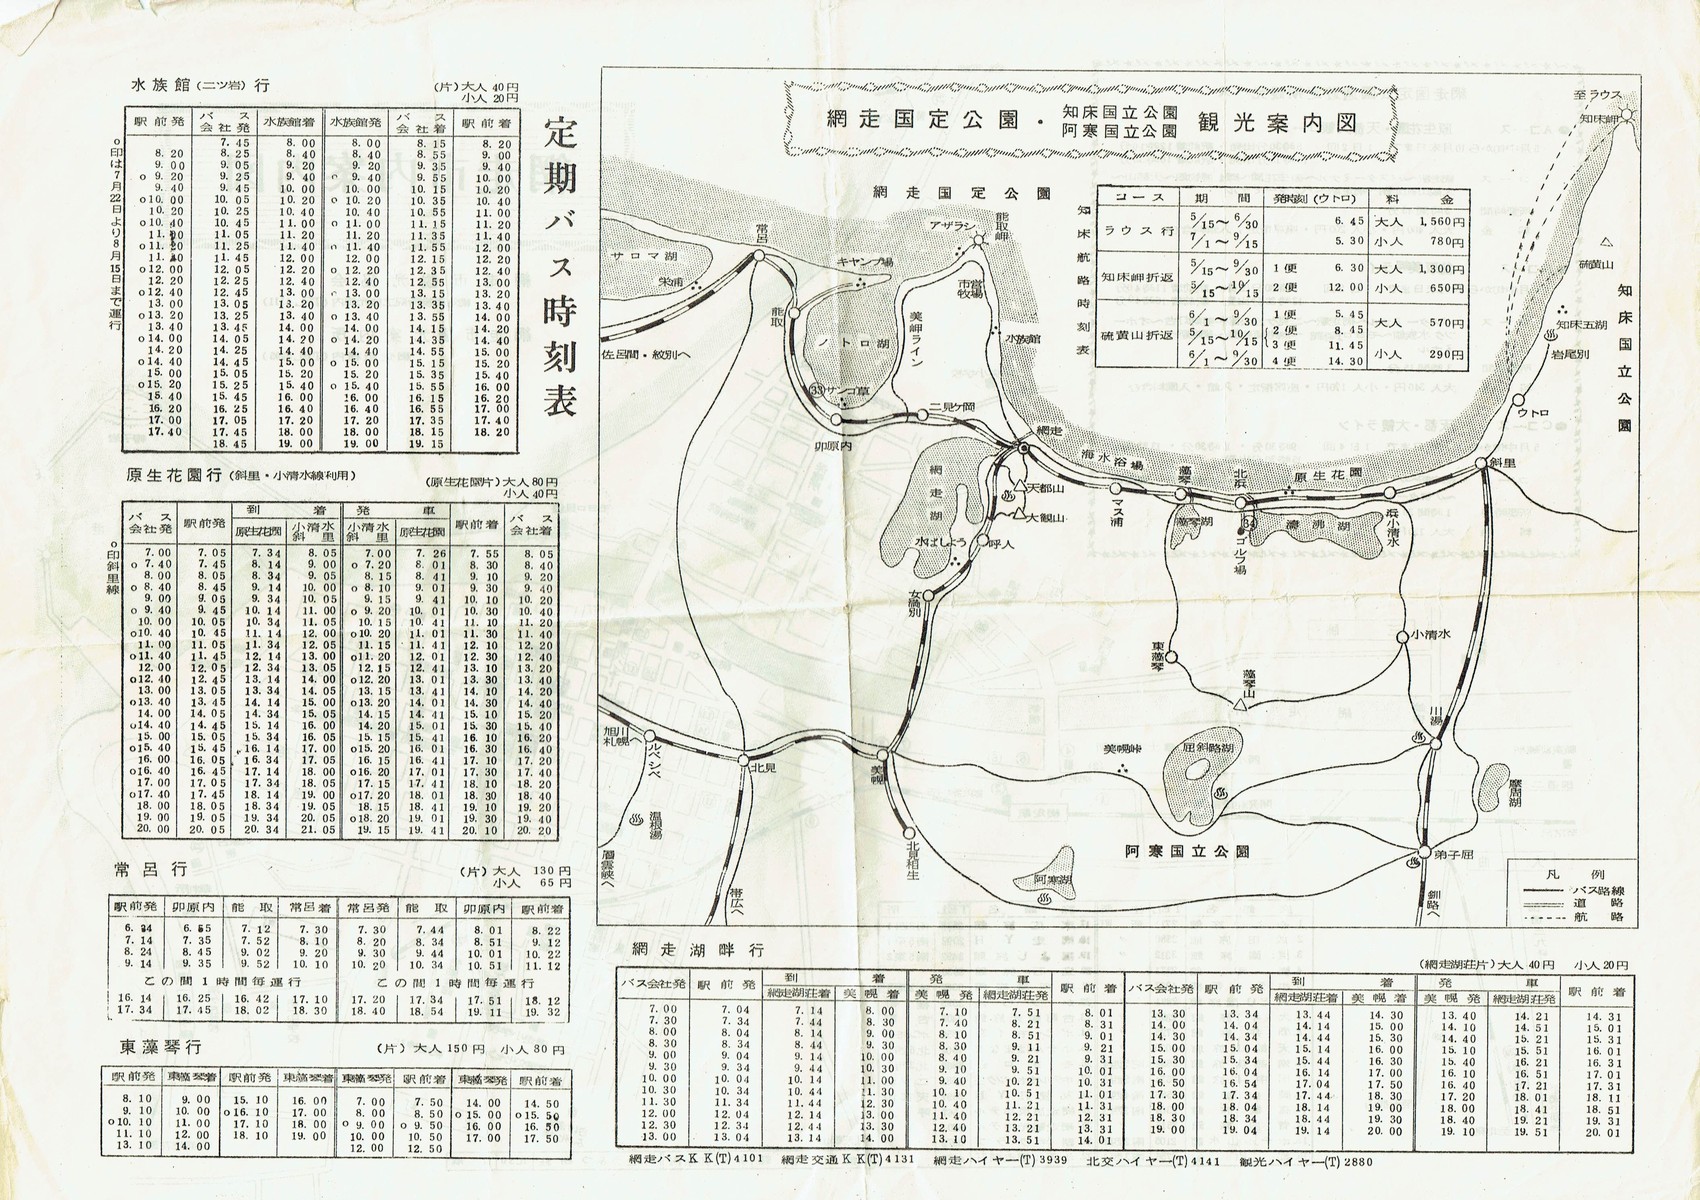 定期バス時刻表
水族館(二ツ岩)行
(片)大人 40円
小人 20円
駅前発 バス会社発 水族館着 水族館発 バス会社着 駅前着
7.45 8.00 8.00 8.15 8.20
8.20 8.25 8.40 8.40 8.55 9.00
9.00 9.05 9.20 9.20 9.35 9.40
o 9.20 9.25 9.40 o 9.40 9.55 10.00
9.40 9.45 10.00 10.00 10.15 10.20
o10.00 10.05 10.20 o 10.20 10.35 10.40
10.20 10.25 10.40 10.40 10.55 11.00
o10.40 10.45 11.00 o 11.00 11.15 11.20
11.25 11.20 11.20 11.35 11.40
o11.20 11.25 11.40 o 11.40 11.55 12.00
11.45 12.00 12.00 12.15 12.20
o12.00 12.05 12.20 o 12.20 12.35 12.40
12.20 12.25 12.40 12.40 12.55 13.00
o12.40 12.45 13.00 o 13.00 13.15 13.20
13.00 13.05 13.20 13.20 13.35 13.40
o13.20 13.25 13.40 o 13.40 13.55 14.00
13.40 13.45 14.00 14.00 14.15 14.20
o14.00 14.05 14.20 o 14.20 14.35 14.40
14.20 14.25 14.40 14.40 14.55 15.00
o14.40 14.45 15.00 o 15.00 15.15 15.20
15.00 15.05 15.20 15.20 15.35 15.40
o15.20 15.25 15.40 o 15.40 15.55 16.00
15.40 15.45 16.00 16.00 16.15 16.20
16.20 16.25 16.40 16.40 16.55 17.00
17.00 17.05 17.20 17.20 17.35 17.40
17.40 17.45 18.00 18.00 18.15 18.20
18.45 19.00 19.00 19.15
o印は7月22日より8月15日まで運行
原生花園行(斜里・小清水線利用)
(原生花園片)大人80円
小人40円
バス会社発 駅前発 到着 発車 駅前着 バス会社着
原生花園 小清水斜里 小清水斜里 原生花園
7.00 7.05 7.34 8.05 7.00 7.26 7.55 8.05
o 7.40 7.45 8.14 9.00 o 7.20 8.01 8.30 8.40
8.00 8.05 8.34 9.05 8.15 8.41 9.10 9.20
o 8.40 8.45 9.14 10.00 o 8.10 9.01 9.30 9.40
9.00 9.05 9.34 10.05 9.15 9.41 10.10 10.20
o 9.40 9.45 10.14 11.00 o 9.20 10.01 10.30 10.40
10.00 10.05 10.34 11.05 10.15 10.41 11.10 11.20
o10.40 10.45 11.14 12.00 o10.20 11.01 11.30 11.40
11.00 11.05 11.34 12.05 11.15 11.41 12.10 12.20
o11.40 11.45 12.14 13.00 o11.20 12.01 12.30 12.40
12.00 12.05 12.34 13.05 12.15 12.41 13.10 13.20
o12.40 12.45 13.14 14.00 o12.20 13.01 13.30 13.40
13.00 13.05 13.34 14.05 13.15 13.41 14.10 14.20
o13.40 13.45 14.14 15.00 o13.20 14.01 14.30 14.40
14.00 14.05 14.34 15.05 14.15 14.41 15.10 15.20
o14.40 14.45 15.14 16.00 o14.20 15.01 15.30 15.40
15.00 15.05 15.34 16.05 15.15 15.41 16.10 16.20
o15.40 15.45 16.14 17.00 o15.20 16.01 16.30 16.40
16.00 16.05 16.34 17.05 16.15 16.41 17.10 17.20
o16.40 16.45 17.14 18.00 o16.20 17.01 17.30 17.40
17.00 17.05 17.34 18.05 17.15 17.41 18.10 18.20
o17.40 17.45 18.14 19.00 o17.20 18.01 18.30 18.40
18.00 18.05 18.34 19.05 18.15 18.41 19.10 19.20
19.00 19.05 19.34 20.05 o18.20 19.01 19.30 19.40
20.00 20.05 20.34 21.05 19.15 19.41 20.10 20.20
o印斜里線
常呂行
(片)大人 130円
小人 65円
駅前発 卯原内 能取 常呂着 常呂発 能取 卯原内 駅前着
6.34 6.55 7.12 7.30 7.30 7.44 8.01 8.22
7.14 7.35 7.52 8.10 8.20 8.34 8.51 9.12
8.24 8.45 9.02 9.20 9.30 9.44 10.01 10.22
9.14 9.35 9.52 10.10 10.20 10.34 10.51 11.12
この間1時間毎運行 この間1時間毎運行
16.14 16.25 16.42 17.10 17.20 17.34 17.51 18.12
17.34 17.45 18.02 18.30 18.40 18.54 19.11 19.32
東藻琴行
(片)大人150円 小人80円
駅前発 東藻琴着 駅前発 東藻琴着 東藻琴発 駅前着 東藻琴発 駅前着
8.10 9.00 15.10 16.00 7.00 7.50 14.00 14.50
9.10 10.00 o16.10 17.00 8.00 8.50 o15.00 o15.50
o10.10 11.00 17.10 18.00 o 9.00 o 9.50 16.00 16.50
11.10 12.00 18.10 19.00 10.00 10.50 17.00 17.50
13.10 14.00 12.00 12.50
網走国定公園・知床国立公園 阿寒国立公園 観光案内図
網走国定公園
知床航路時刻表
コース 期間 発時刻(ウトロ) 料金
ラウス行 5/15〜6/30 6.45 大人 1,560円
7/1〜9/15 5.30 小人 780円
知床岬折返 5/15〜9/30 1便 6.30 大人 1,300円
5/15〜10/15 2便 12.00 小人 650円
硫黄山折返 6/1〜9/30 1便 5.45 大人 570円
5/15〜10/15 2便 8.45
3便 11.45
6/1〜9/30 4便 14.30 小人 290円
至ラウス
知床岬
硫黄山
知床国立公園
知床五湖
岩尾別
ウトロ
斜里
サロマ湖
栄浦
常呂
佐呂間・紋別へ
能取
キャンプ場
アザラシ
能取岬
市営牧場
美岬ライン
水族館
ノトロ湖
33
サンゴ草
卯原内
二見ケ岡
網走
網走湖
天都山
大観山
水ばしょう
呼人
女満別
海水浴場
マス浦
藻琴
藻琴湖
北浜
34
ゴルフ場
原生花園
濤沸湖
浜小清水
小清水
東藻琴
藻琴山
川湯
美幌峠
屈斜路湖
摩周湖
弟子屈
釧路へ
阿寒国立公園
阿寒湖
美幌
北見相生
北見
旭川札幌へ
ルベシベ
温根湯
層雲峡へ
帯広へ
凡例
バス路線
道路
航路
網走湖畔行
(網走湖荘片)大人 40円 小人 20円
バス会社発 駅前発 到着 発車 駅前着 バス会社発 駅前発 到着 発車 駅前着
網走湖荘着 美幌着 美幌発 網走湖荘発 網走湖荘着 美幌着 美幌発 網走湖荘発
7.00 7.04 7.14 8.00 7.10 7.51 8.01 13.30 13.34 13.44 14.30 13.40 14.21 14.31
7.30 7.34 7.44 8.30 7.40 8.21 8.31 14.00 14.04 14.14 15.00 14.10 14.51 15.01
8.00 8.04 8.14 9.00 8.10 8.51 9.01 14.30 14.34 14.44 15.30 14.40 15.21 15.31
8.30 8.34 8.44 9.30 8.30 9.11 9.21 15.00 15.04 15.14 16.00 15.10 15.51 16.01
9.00 9.04 9.14 10.00 8.40 9.21 9.31 15.30 15.34 15.44 16.30 15.40 16.21 16.31
9.30 9.34 9.44 10.30 9.10 9.51 10.01 16.00 16.04 16.14 17.00 16.10 16.51 17.01
10.00 10.04 10.14 11.00 9.40 10.21 10.31 16.50 16.54 17.04 17.50 16.40 17.21 17.31
10.30 10.34 10.44 11.30 10.10 10.51 11.01 17.30 17.34 17.44 18.30 17.20 18.01 18.11
11.30 11.34 11.44 12.30 10.40 11.21 11.31 18.00 18.04 18.14 19.00 18.00 18.41 18.51
12.00 12.04 12.14 13.00 11.40 12.21 12.31 18.30 18.34 18.44 19.30 18.40 19.21 19.31
12.30 12.34 12.44 13.30 12.40 13.21 13.31 19.00 19.04 19.14 20.00 19.10 19.51 20.01
13.00 13.04 13.14 14.00 13.10 13.51 14.01
網走バスKK(T)4101 網走交通KK(T)4131 網走ハイヤー(T)3939 北交ハイヤー(T)4141 観光ハイヤー(T)2880